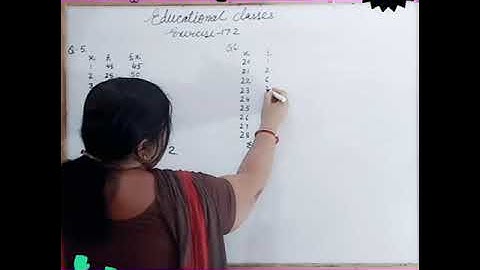 Educational classes
Exercise-17.2
Q.5.
x f fx
1 45 45
2 25 50
3
2
Q6
x f
20 1
21 2
22 6
23
24
25
26
27
28